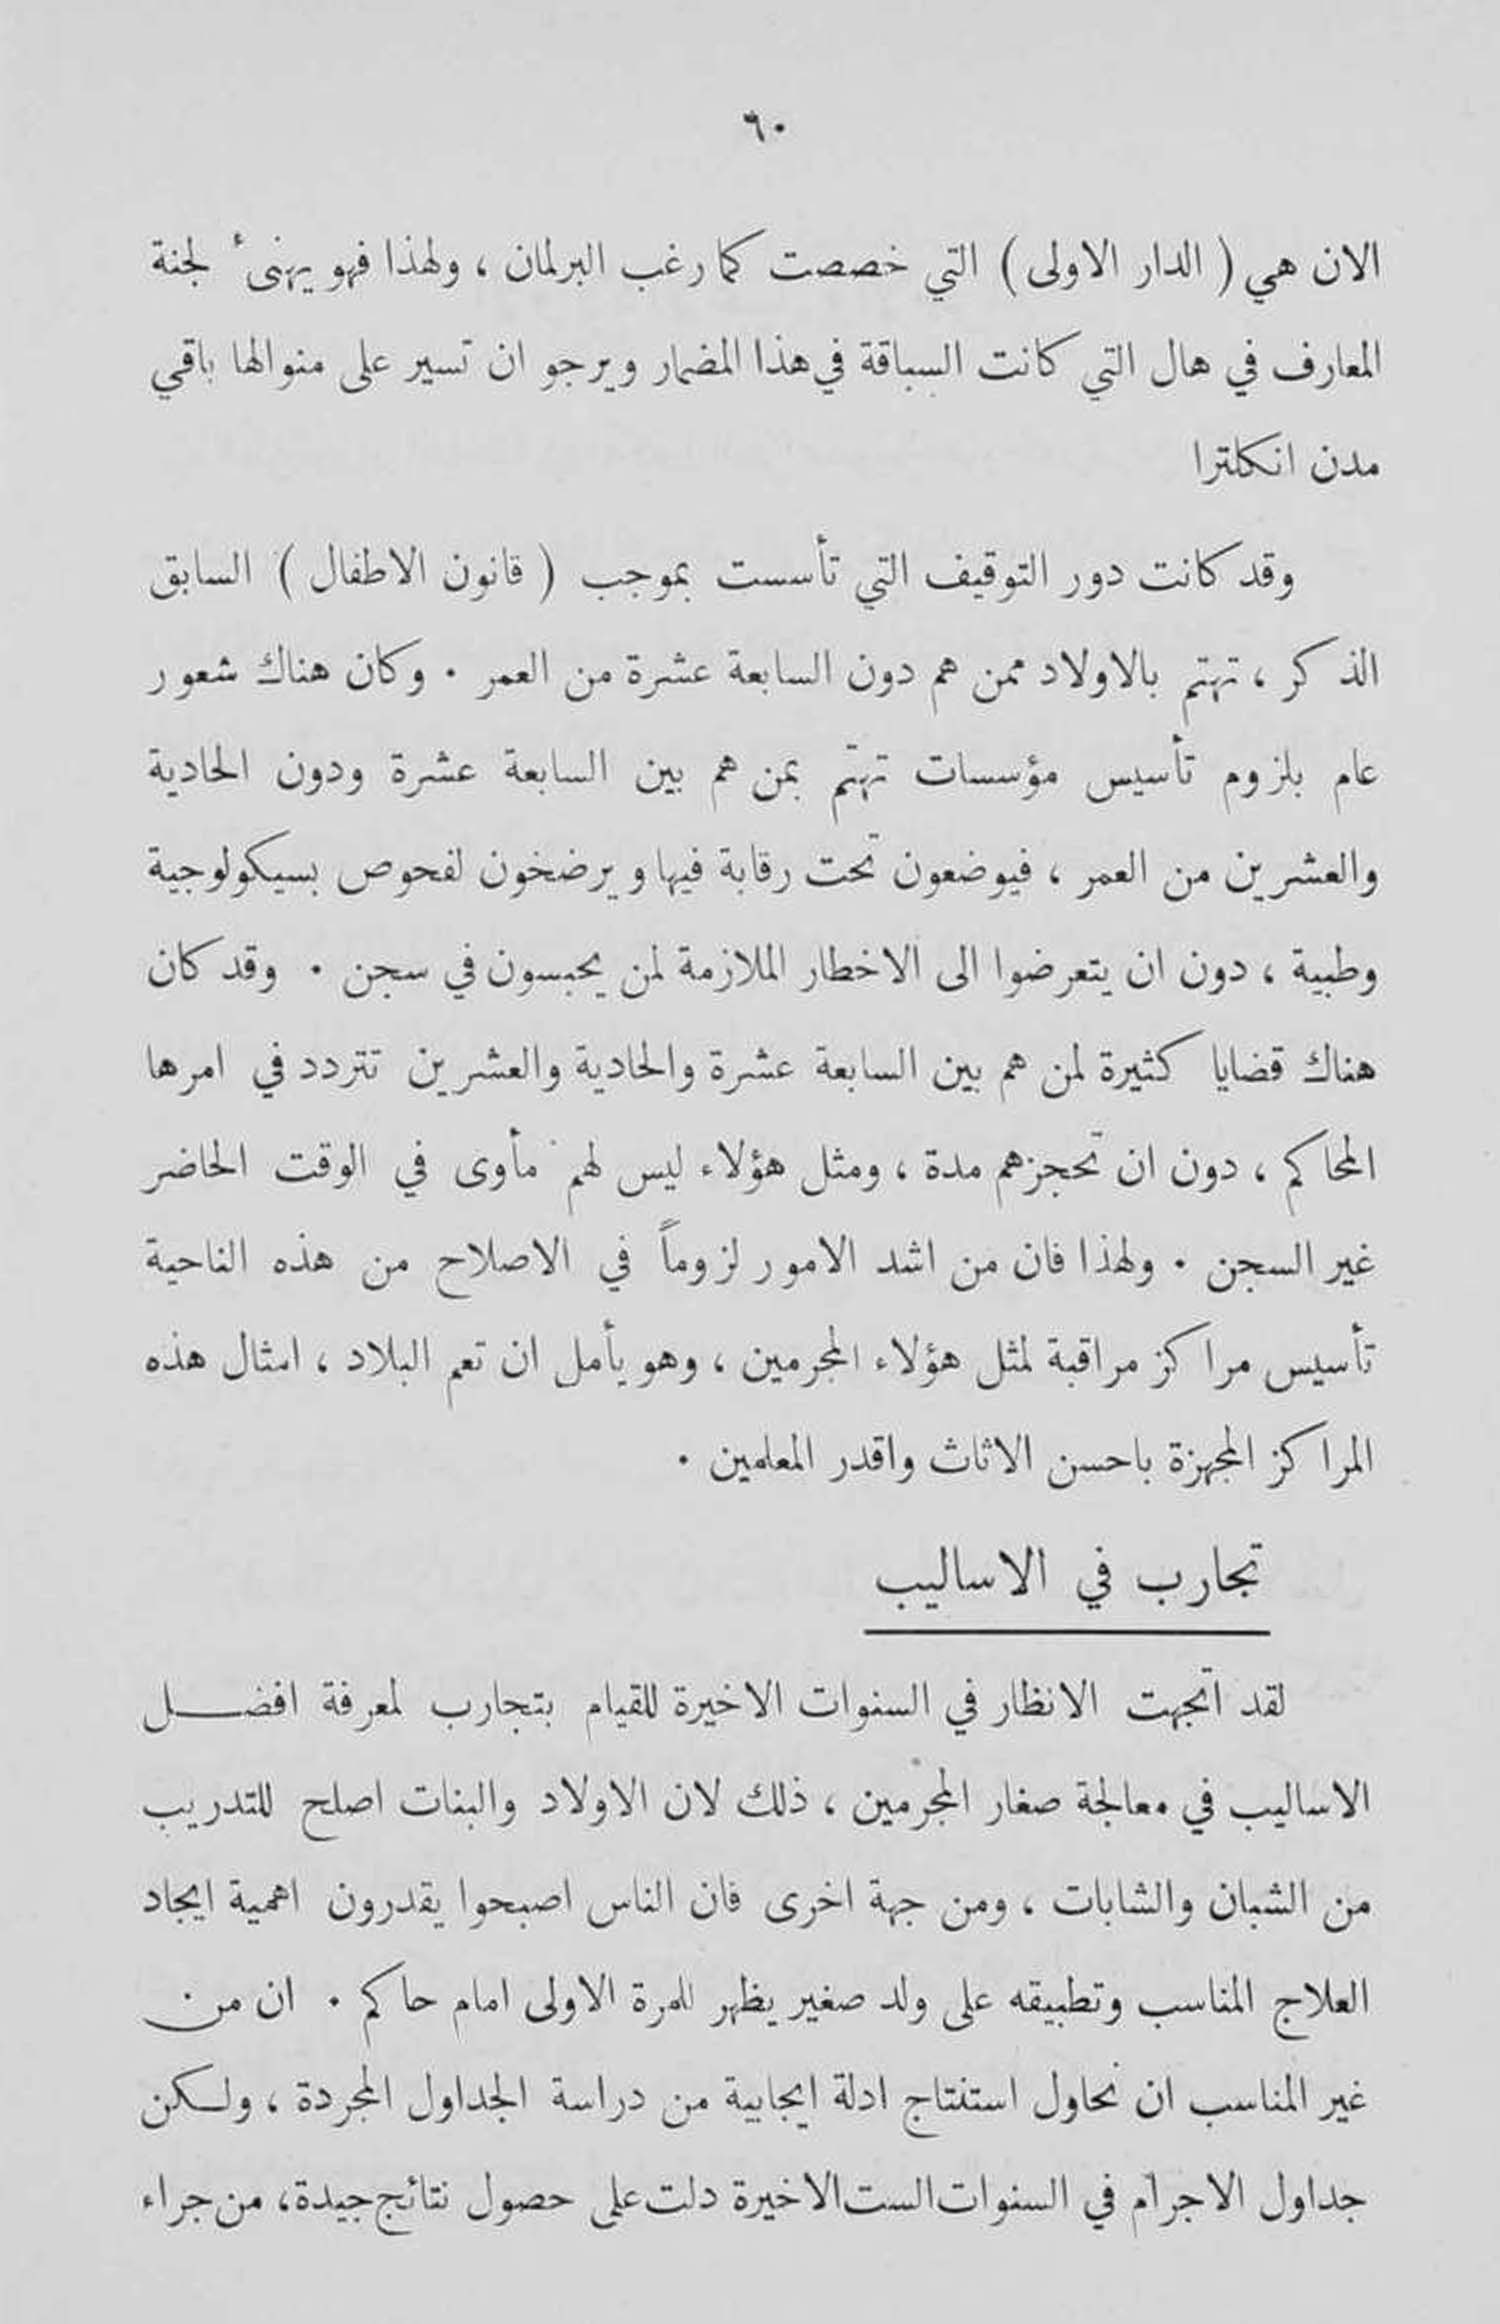 ٦٠
الان هي ( الدار الاولى ) التي خصصت كما رغب البرلمان ، ولهذا فهو يهنىء لجنة
المعارف في هال التي كانت السباقة في هذا المضمار ويرجو ان تسير على منوالها باقي
مدن انكلترا
وقد كانت دور التوقيف التي تأسست بموجب ( قانون الاطفال ) السابق
الذكر ، تهتم بالاولاد ممن هم دون السابعة عشرة من العمر . وكان هناك شعور
عام بلزوم تأسيس مؤسسات تهتّم بمن هم بين السابعة عشرة ودون الحادية
والعشرين من العمر ، فيوضعون تحت رقابة فيها ويرضخون لفحوص بسيكولوجية
وطبية ، دون ان يتعرضوا الى الاخطار الملازمة لمن يحبسون في سجن . وقد كان
هناك قضايا كثيرة لمن هم بين السابعة عشرة والحادية والعشرين تتردد في امرها
المحاكم ، دون ان تحجزهم مدة ، ومثل هؤلاء ليس لهم مأوى في الوقت الحاضر
غير السجن . ولهذا فان من اشد الامور لزوماً في الاصلاح من هذه الناحية
تأسيس مراكز مراقبة لمثل هؤلاء المجرمين ، وهو يأمل ان تعم البلاد ، امثال هذه
المراكز المجهزة باحسن الاثاث واقدر المعلمين .
تجارب في الاساليب
لقد اتجهت الانظار في السنوات الاخيرة للقيام بتجارب لمعرفة افضـــل
الاساليب في معالجة صغار المجرمين ، ذلك لان الاولاد والبنات اصلح للتدريب
من الشبان والشابات ، ومن جهة اخرى فان الناس اصبحوا يقدرون اهمية ايجاد
العلاج المناسب وتطبيقه على ولد صغير يظهر للمرة الاولى امام حاكم . ان من
غير المناسب ان نحاول استنتاج ادلة ايجابية من دراسة الجداول المجردة ، ولـكن
جداول الاجرام في السنوات الست الاخيرة دلت على حصول نتائج جيدة، من جراء